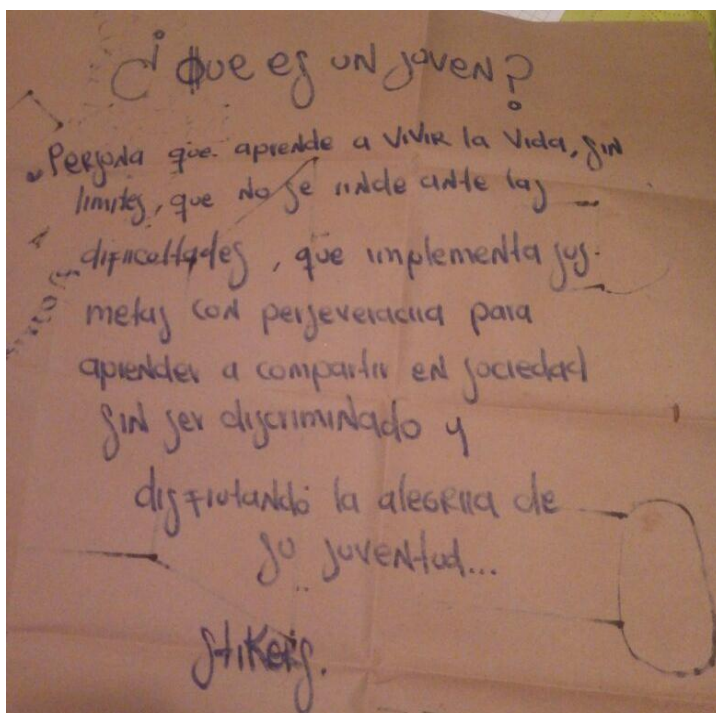 ¿Que es un joven?
Persona que aprende a vivir la vida, sin
limites, que no se rinde ante las
dificultades, que implementa sus
metas con perseverancia para
aprender a compartir en sociedad
sin ser discriminado y
disfrutando la alegria de
su juventud...
stikers.